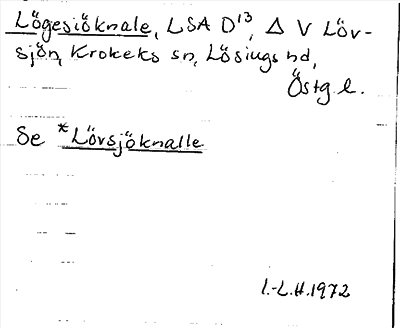 Lögesiöknale, LSA D¹³, Δ V Löv-
sjön, Krokeks sn, Lösings hd,
Östg. l.
Se *Lövsjöknalle
I.-L.H. 1972